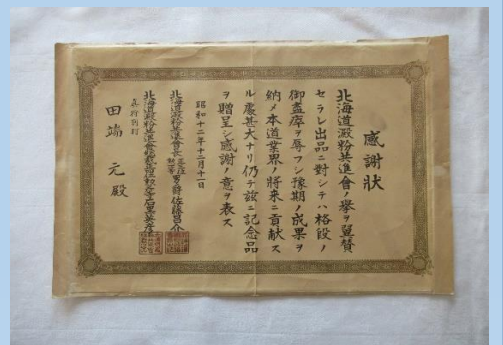 感謝狀
北海道澱粉共進會ノ擧ヲ翼賛
セラレ出品ニ對シテハ格段ノ
御盡瘁ヲ辱フシ豫期ノ成果ヲ
納メ本道業界ノ將来ニ貢献ス
ル處甚大ナリ仍テ玆ニ記念品
ヲ贈呈シ感謝ノ意ヲ表ス
昭和十二年十二月十一日
北海道澱粉共進會長 男爵 佐藤昌介
北海道澱粉共進會總裁 石黒英彦
真狩別村
田端 元殿